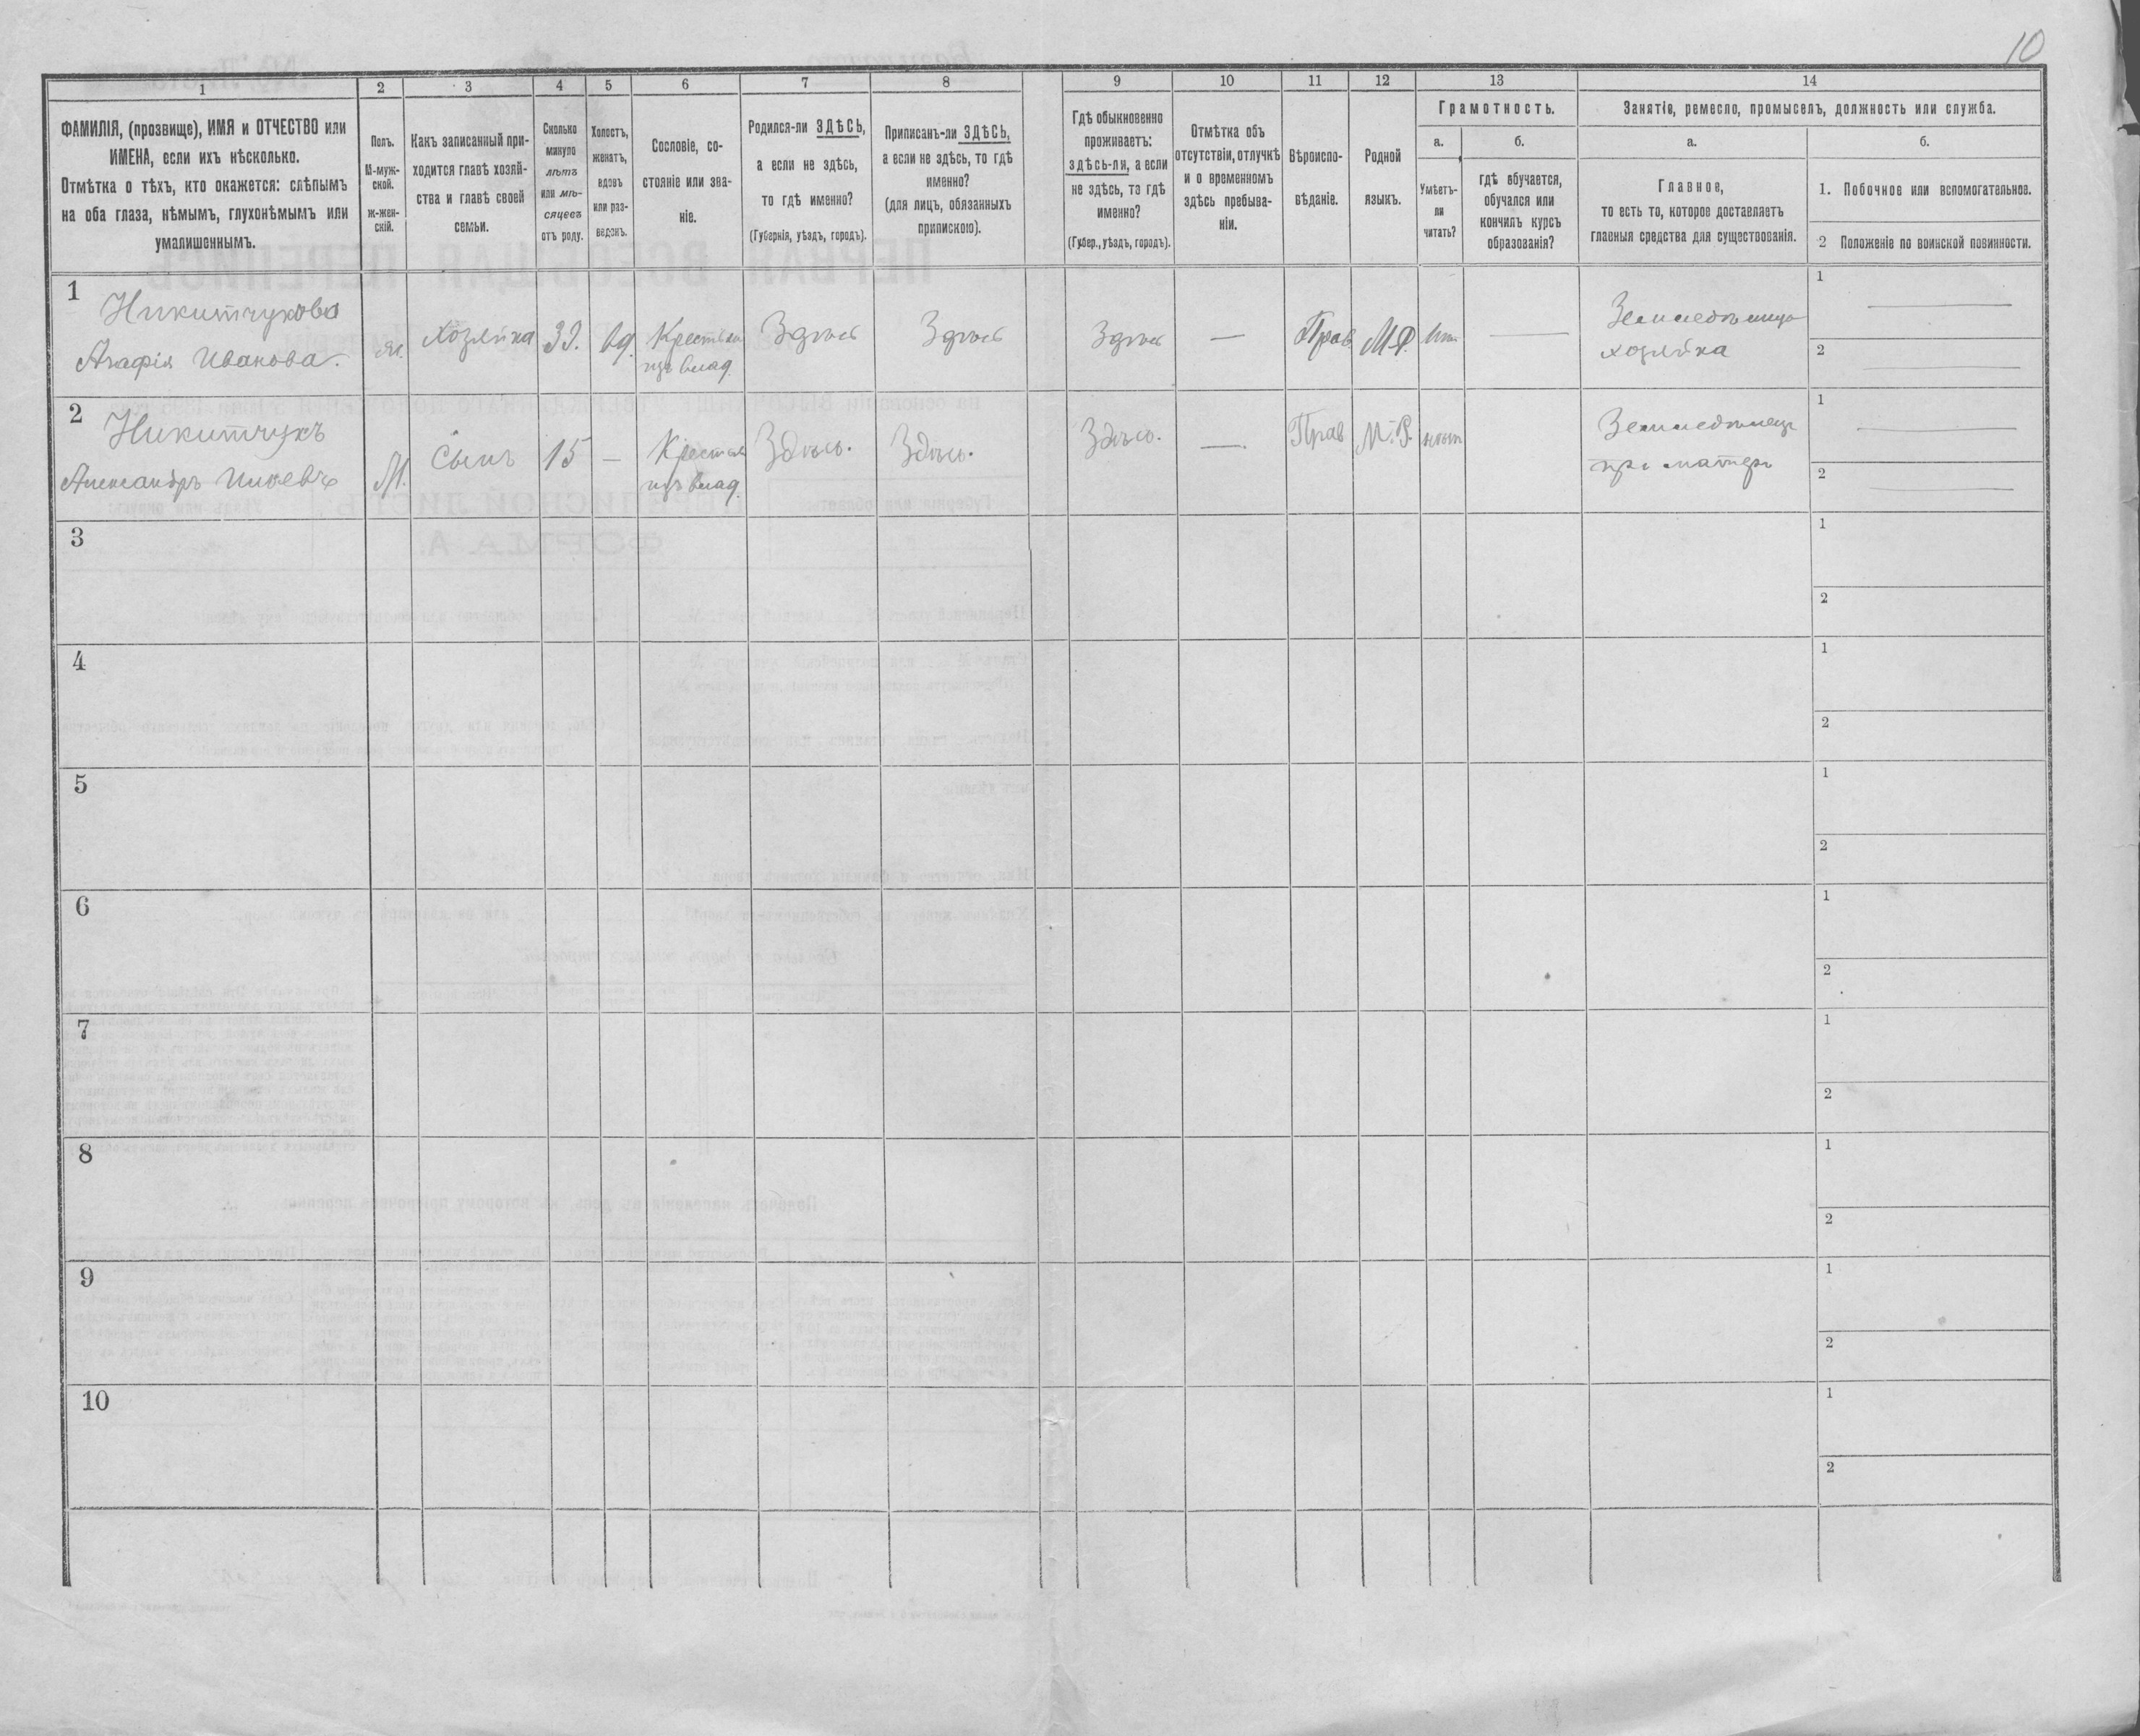 10
1 2 3 4 5 6 7 8 9 10 11 12 13 14
ФАМИЛІЯ, (прозвище), ИМЯ и ОТЧЕСТВО или
ИМЕНА, если ихъ нѣсколько.
Отмѣтка о тѣхъ, кто окажется: слѣпымъ
на оба глаза, нѣмымъ, глухонѣмымъ или
умалишеннымъ.
Полъ.
М-муж-
ской.
ж-жен-
скій.
Какъ записанный при-
ходится главѣ хозяй-
ства и главѣ своей
семьи.
Сколько
минуло
лѣтъ
или мѣ-
сяцевъ
отъ роду.
Холостъ,
женатъ,
вдовъ
или раз-
веденъ.
Сословіе, со-
стояніе или зва-
ніе.
Родился-ли ЗДѢСЬ,
а если не здѣсь,
то гдѣ именно?
(Губернія, уѣздъ, городъ).
Приписанъ-ли ЗДѢСЬ,
а если не здѣсь, то гдѣ
именно?
(для лицъ, обязанныхъ
припискою).
Гдѣ обыкновенно
проживаетъ:
здѣсь-ли, а если
не здѣсь, то гдѣ
именно?
(Губер., уѣздъ, городъ).
Отмѣтка объ
отсутствіи, отлучкѣ
и о временномъ
здѣсь пребыва-
ніи.
Вѣроиспо-
вѣданіе.
Родной
языкъ.
Грамотность.
а.
Умѣетъ-
ли
читать?
б.
гдѣ обучается,
обучался или
кончилъ курсъ
образованія?
Занятіе, ремесло, промыселъ, должность или служба.
а.
Главное,
то есть то, которое доставляетъ
главныя средства для существованія.
б.
1. Побочное или вспомогательное.
2 Положеніе по воинской повинности.
1
Никитчукова
Агафія Иванова.
Хозяйка
вд.
Крестьян
изъ влад.
Здѣсь
Здѣсь
Здѣсь
—
Прав
М.Р.
—
Земледѣлица
хозяйка
1 —
2 —
2
Никитчукъ
Александръ
М.
Сынъ
15
—
Крестьян
изъ влад.
Здѣсь.
Здѣсь.
Здѣсь.
—
Прав
М.Р.
нѣтъ
Земледѣлецъ
при матери
1 —
2 —
3
1
2
4
1
2
5
1
2
6
1
2
7
1
2
8
1
2
9
1
2
10
1
2